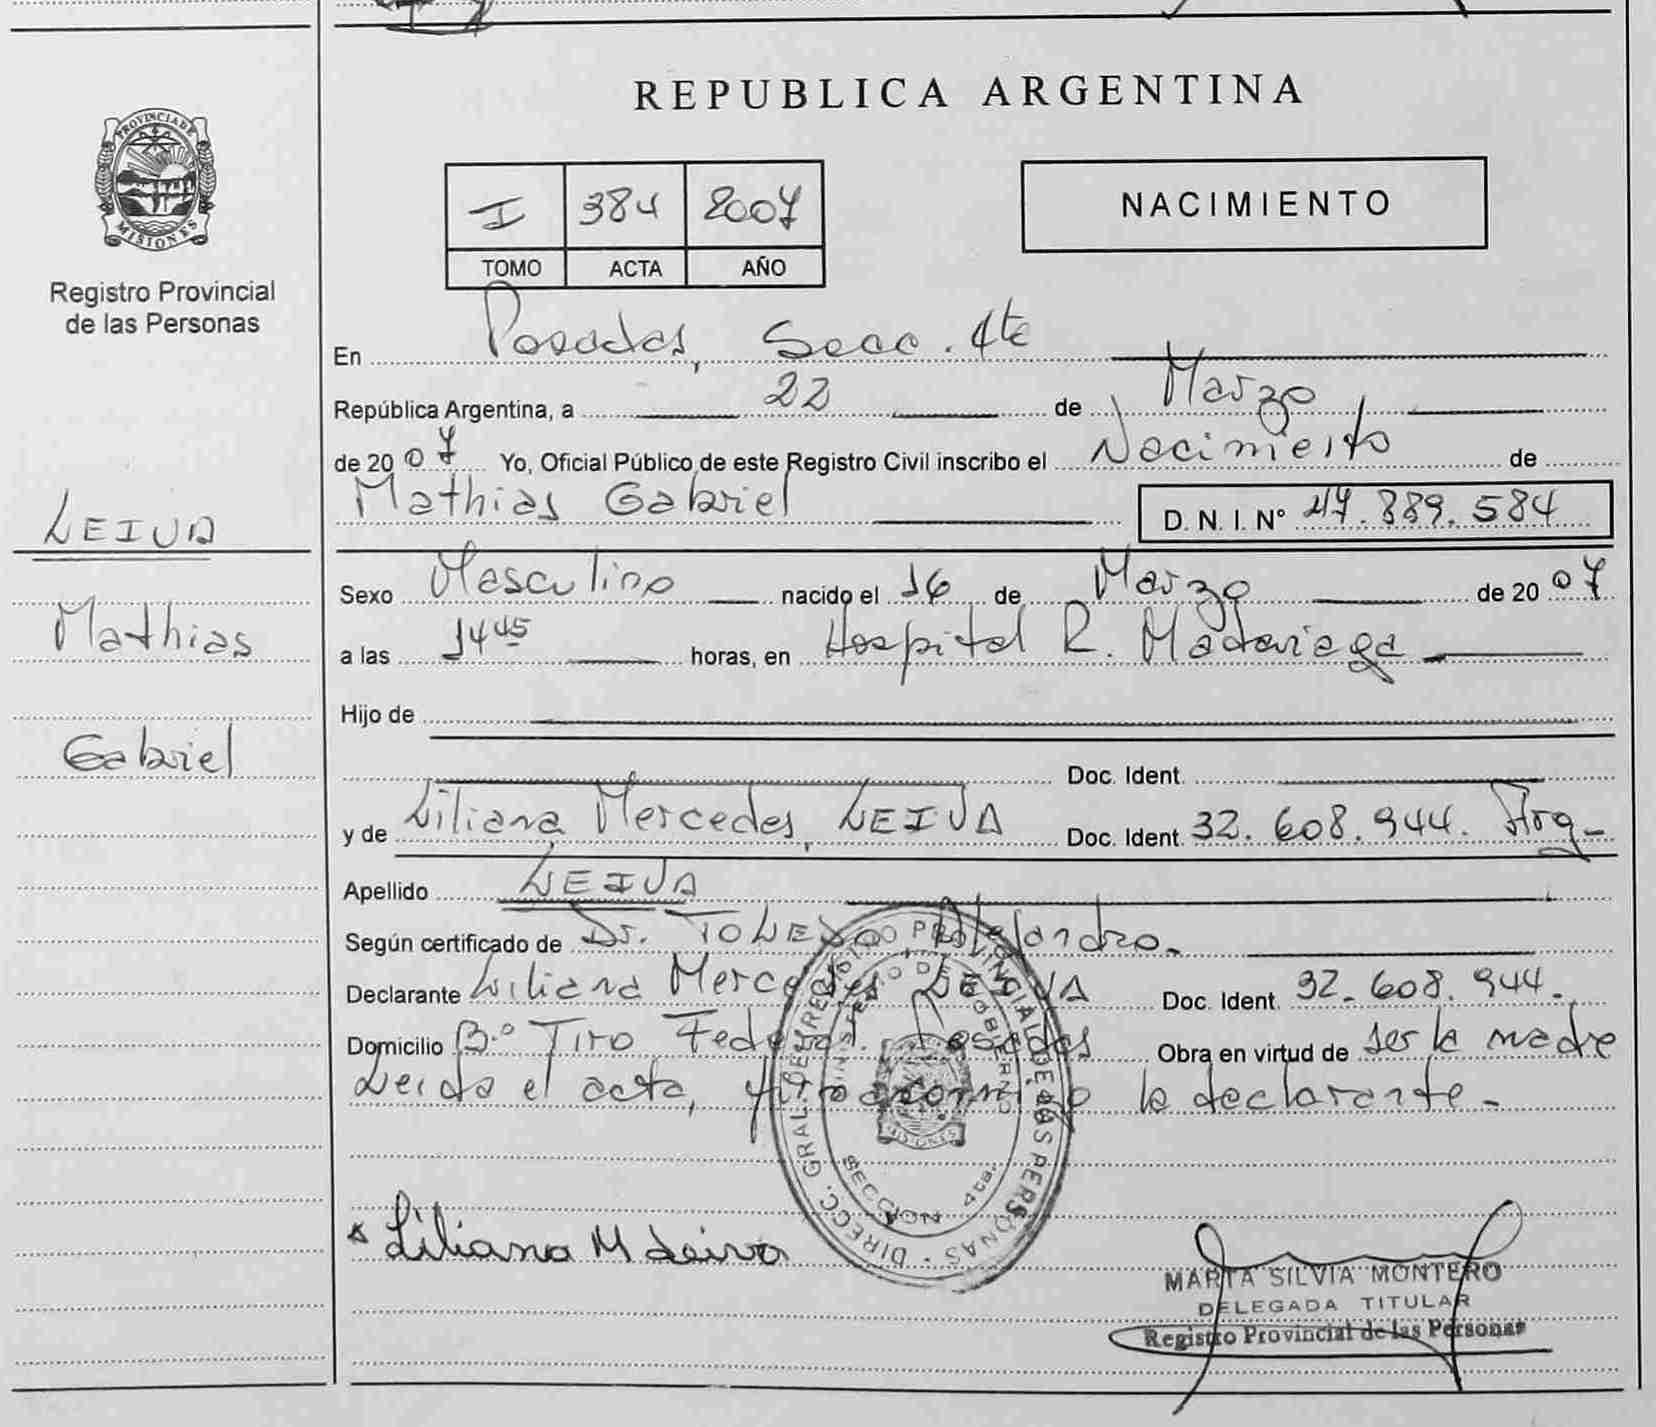 REPUBLICA ARGENTINA
PROVINCIA DE
MISIONES
Registro Provincial
de las Personas
I 384 2007
TOMO ACTA AÑO
NACIMIENTO
En Posadas, Secc. 4ta
República Argentina, a 22 de Marzo
de 2007 Yo, Oficial Público de este Registro Civil inscribo el Nacimiento de
Mathias Gabriel D. N. I. Nº 47.889.584
LEIVA
Mathias
Gabriel
Sexo Masculino nacido el 16 de Marzo de 2007
a las 14 45 horas, en Hospital R. Madariaga
Hijo de
Doc. Ident.
y de Liliana Mercedes, LEIVA Doc. Ident. 32.608.944. Arg-
Apellido LEIVA
Según certificado de Dr. TOLEDO Alejandro.-
Declarante Liliana Mercedes LEIVA Doc. Ident. 32.608.944.
Domicilio B.º Tiro Federal. Posadas Obra en virtud de ser la madre
Leida el acta, firma conmigo la declarante.-
DIRECC. GRAL. DEL REGISTRO PROVINCIAL DE LAS PERSONAS
MINISTERIO DE GOBIERNO
MISIONES
SECCION 4ta.
Liliana M Leiva
MARTA SILVIA MONTERO
DELEGADA TITULAR
Registro Provincial de las Personas